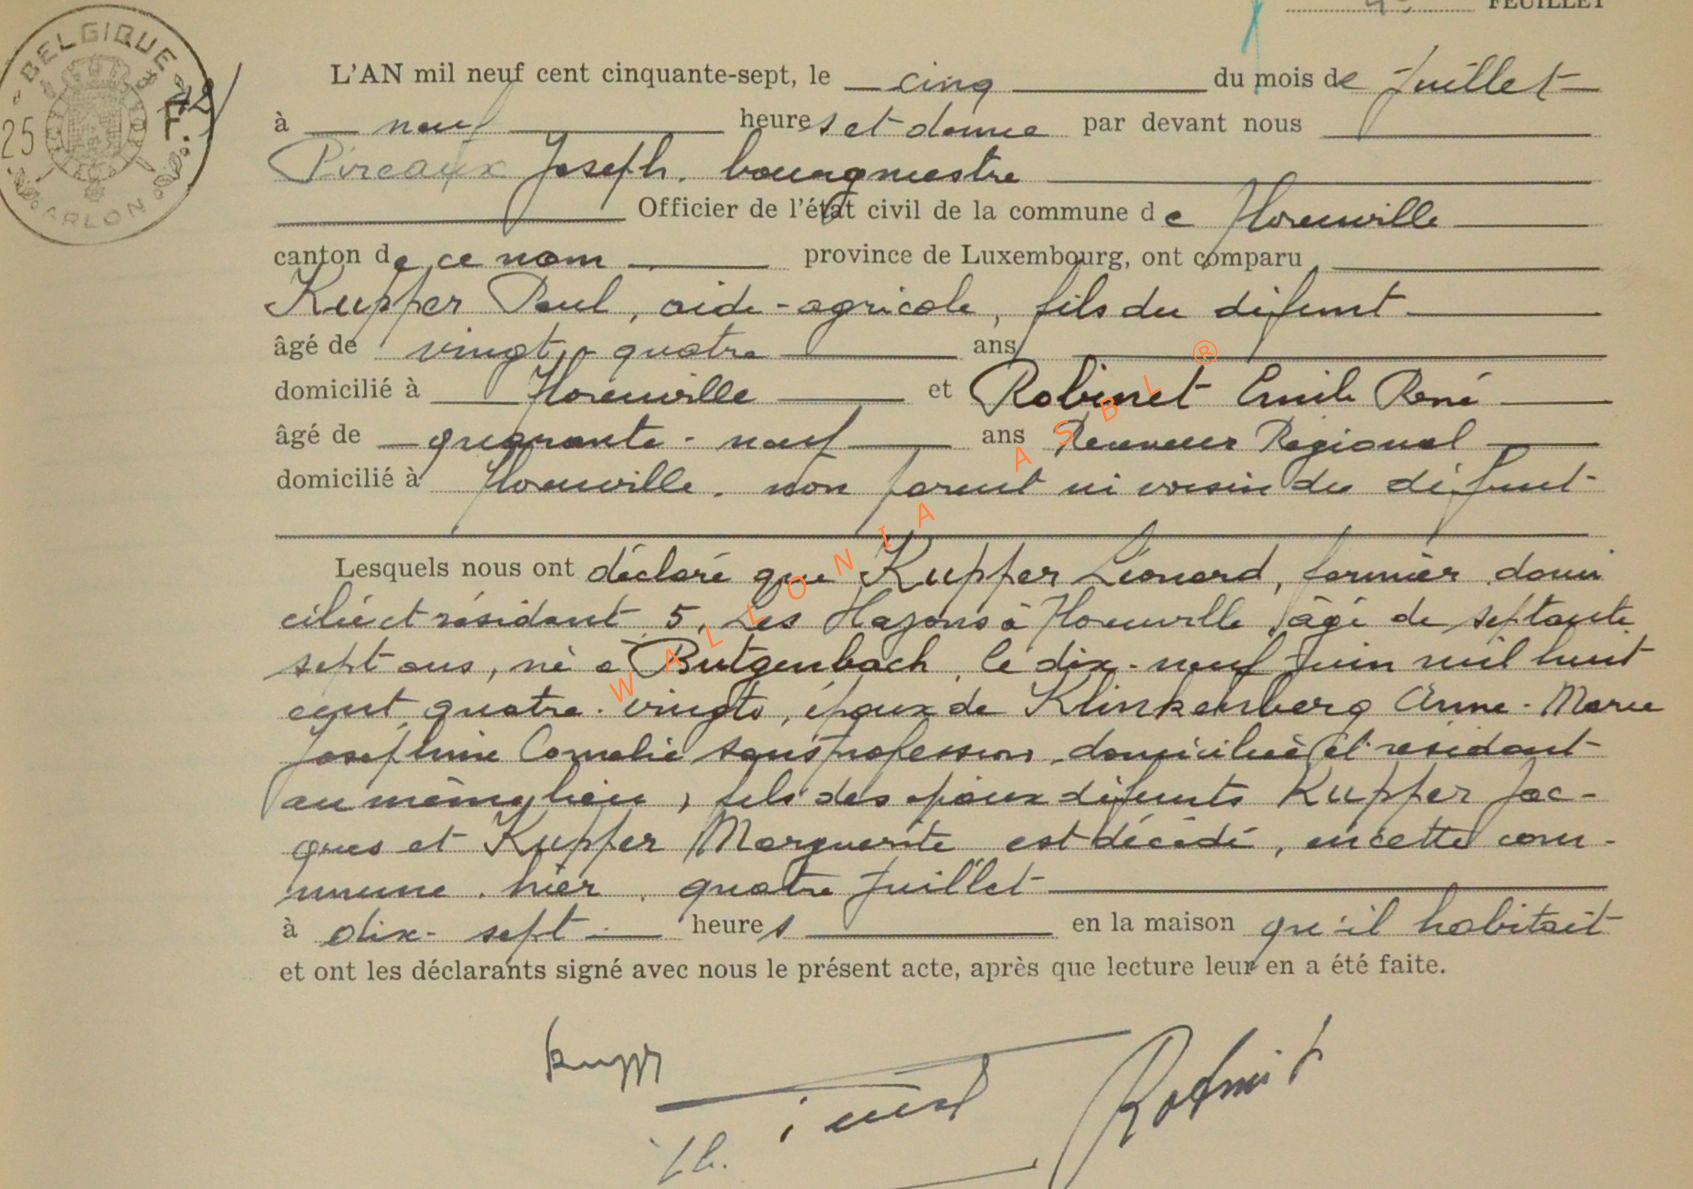 FEUILLET
BELGIQUE
25 F.
ARLON
L'AN mil neuf cent cinquante-sept, le cinq du mois de Juillet
à neuf heures et demie par devant nous
Pireaux Joseph. bourgmestre
Officier de l'état civil de la commune de Florenville
canton de ce nom province de Luxembourg, ont comparu
Kupfer Paul, aide-agricole, fils du défunt
âgé de vingt-quatre ans
domicilié à Florenville et Robinet Emile René
âgé de quarante-neuf ans Receveur Régional
domicilié à Florenville. non parent ni voisin du défunt
Lesquels nous ont déclaré que Kupfer Léonard, fermier domi
cilié et résidant 5, Les Hayons à Florenville, âgé de septante
sept ans, né à Butgenbach, le dix-neuf Juin mil huit
cent quatre-vingts, époux de Klinkenberg Anne-Marie
Joséphine Cornélie sans profession, domiciliée et résidant
au même lieu, fils des époux défunts Kupfer Jac-
ques et Kupfer Marguerite est décédé, en cette com-
mune. hier. quatre Juillet
à dix-sept heures en la maison qu'il habitait
et ont les déclarants signé avec nous le présent acte, après que lecture leur en a été faite.
WALLONIA ASBL ®